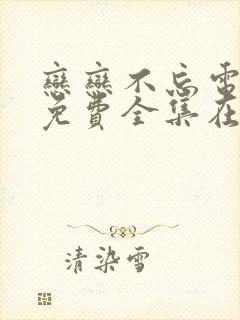 戀戀不忘電
免費全集在
清染雪